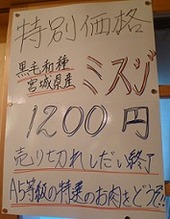 特別価格
黒毛和種
宮城県産
ミスジ
1200円
売り切れしだい終了
A5等級の特選のお肉をどうぞ!!